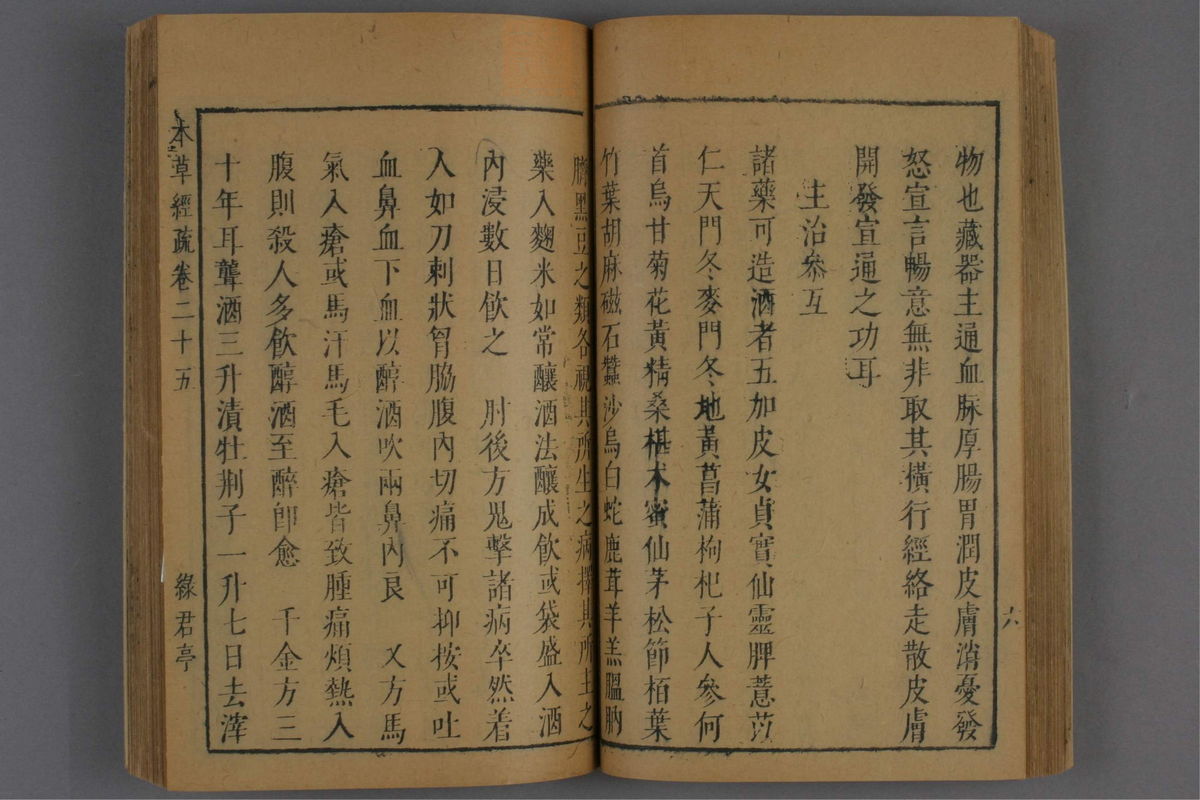 物也藏器主通血脉厚腸胃潤皮膚消憂發
怒宣言暢意無非取其橫行經絡走散皮膚
開發宣通之功耳
主治參互
諸藥可造酒者五加皮女貞實仙靈脾薏苡
仁天門冬麥門冬地黃菖蒲枸杞子人參何
首烏甘菊花黃精桑椹木蜜仙茅松節栢葉
竹葉胡麻磁石蠶沙烏白蛇鹿茸羊羔膃肭
臍黑豆之類各視其所生之病擇其所主之
藥入麴米如常釀酒法釀成飲或袋盛入酒
內浸數日飲之 肘後方鬼擊諸病卒然着
人如刀刺狀胷脇腹內切痛不可抑按或吐
血鼻血下血以醇酒吹兩鼻內良 又方馬
氣入瘡或馬汗馬毛入瘡皆致腫痛煩熱入
腹則殺人多飲醇酒至醉卽愈 千金方三
十年耳聾酒三升漬牡荆子一升七日去滓
本草經疏卷二十五 綠君亭
六